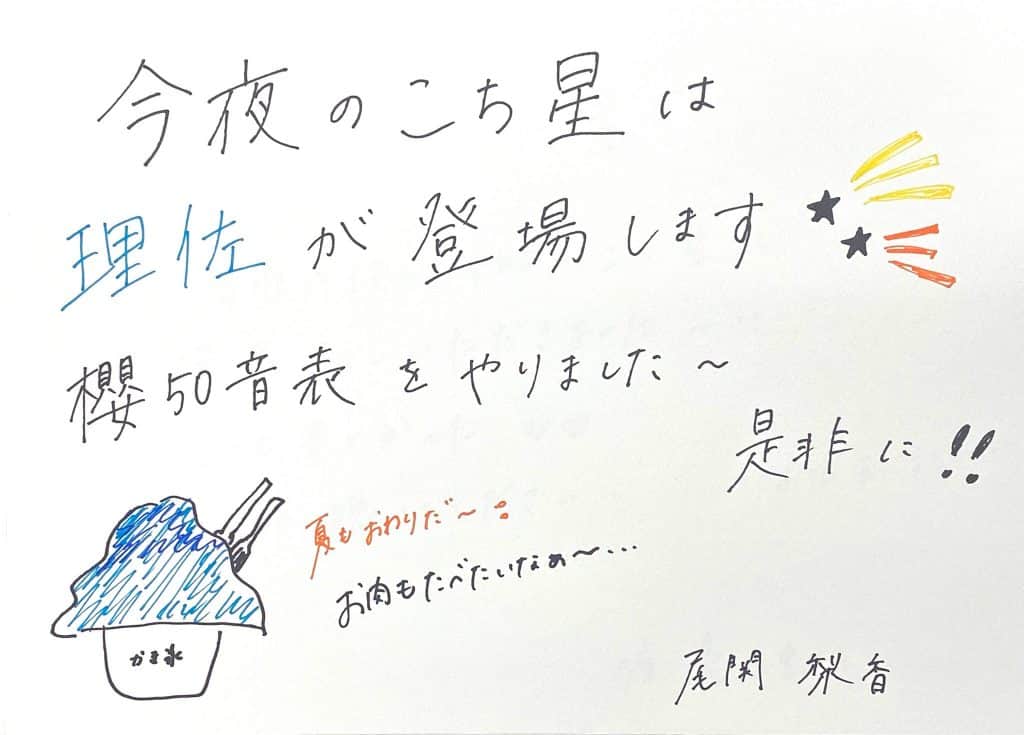 今夜のこち星は
理佐が登場します
櫻50音表をやりました〜
是非に!!
夏もおわりだ〜
お肉もたべたいなぁ〜...
かき氷
尾関 梨香